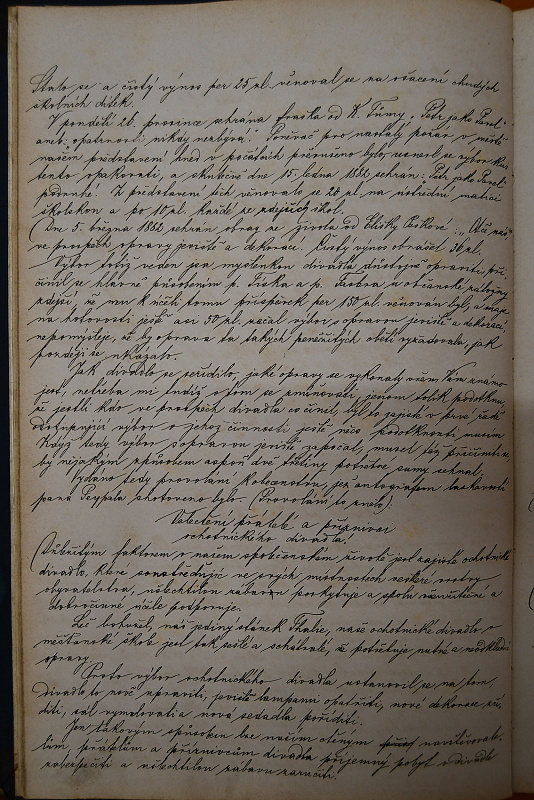 Stalo se a čistý výnos per 25 zl. věnoval se na ošacení chudých
školních dítek.
V pondělí 26. prosince sehrána fraška od K. Tůmy „Petr jako Pavel“
aneb: opatrnosti nikdy nezbývá“. Poněvač pro nastalý požár v městě
našem představení hned v počátcích přerušeno bylo, usnesl se výbor kus
tento opakovati, a skutečně dne 15. ledna 1882 sehrán: Petr jako Pavel“
podruhé. Z představení těch věnovalo se 28 zl. na ústřední matici
školskou a po 10 zl. každé ze zdejších škol.
Dne 5. března 1882 sehrán obraz ze života od Elišky Peškové: „Otče náš“
ve prospěch opravy jeviště a dekorací. Čistý výnos obnášel 36 zl.
Výbor totiž veden jsa myšlenkou divadlo důstojně opraviti, při-
činil se hlavně působením p. Fiska a p. u občanské záložny
zdejší, že mu k účeli tomu příspěvek per 150 zl. věnován byl, a maje
na hotovosti ještě asi 50 zl. začal výbor s opravou jeviště a dekorací,
nepomýšleje, že by oprava ta takých peněžitých obětí vyžadovala, jak
později se ukázalo.
Jak divadlo se zařídilo, jaké opravy se vykonaly všem Vám známo
jest, netřeba mi tudíž o tom se zmiňovati, jenom tolik podotknu,
že jestli kdo ve prospěch divadla co činil, byl to zajisté v prvé řadě
odstupující výbor o jehož činnosti ještě něco podotknouti musím
Když tedy výbor s opravou jeviště započal, musel též přičiniti se,
by nějakým způsobem aspoň dvě třetiny potřebné sumy sehnal.
Vydáno tedy provolání k obecenstvu, jež autografem laskavostí
pana Peypala zhotoveno bylo. (Provolání to znělo):
Velectění přátelé a příznivci
ochotnického divadla!
Důležitým faktorem v našem společenském životě jest zajisté ochotnické
divadlo, které soustřeďujíc ve svých místnostech veškeré vrstvy
obyvatelstva, ušlechtilou zábavu poskytuje a spolu
dobročinné účele podporuje.
Leč bohužel, náš jediný stánek Thalie, naše ochotnické divadlo v
měšťanské škole jest tak sešlé a schátralé, že potřebuje nutné a neodkladné
opravy.
Proto výbor ochotnického divadla ustanovil se na tom,
divadlo to nově upraviti, jeviště lampami opatřiti, nové dekorace zří-
diti, sál vymalovati a nová sedadla poříditi.
Jen takovým způsobem lze našim ctěným navštěvova-
lům, přátelům a příznivcům divadla příjemný pobyt v divadle
zabezpečiti a ušlechtilou zábavu zaručiti.